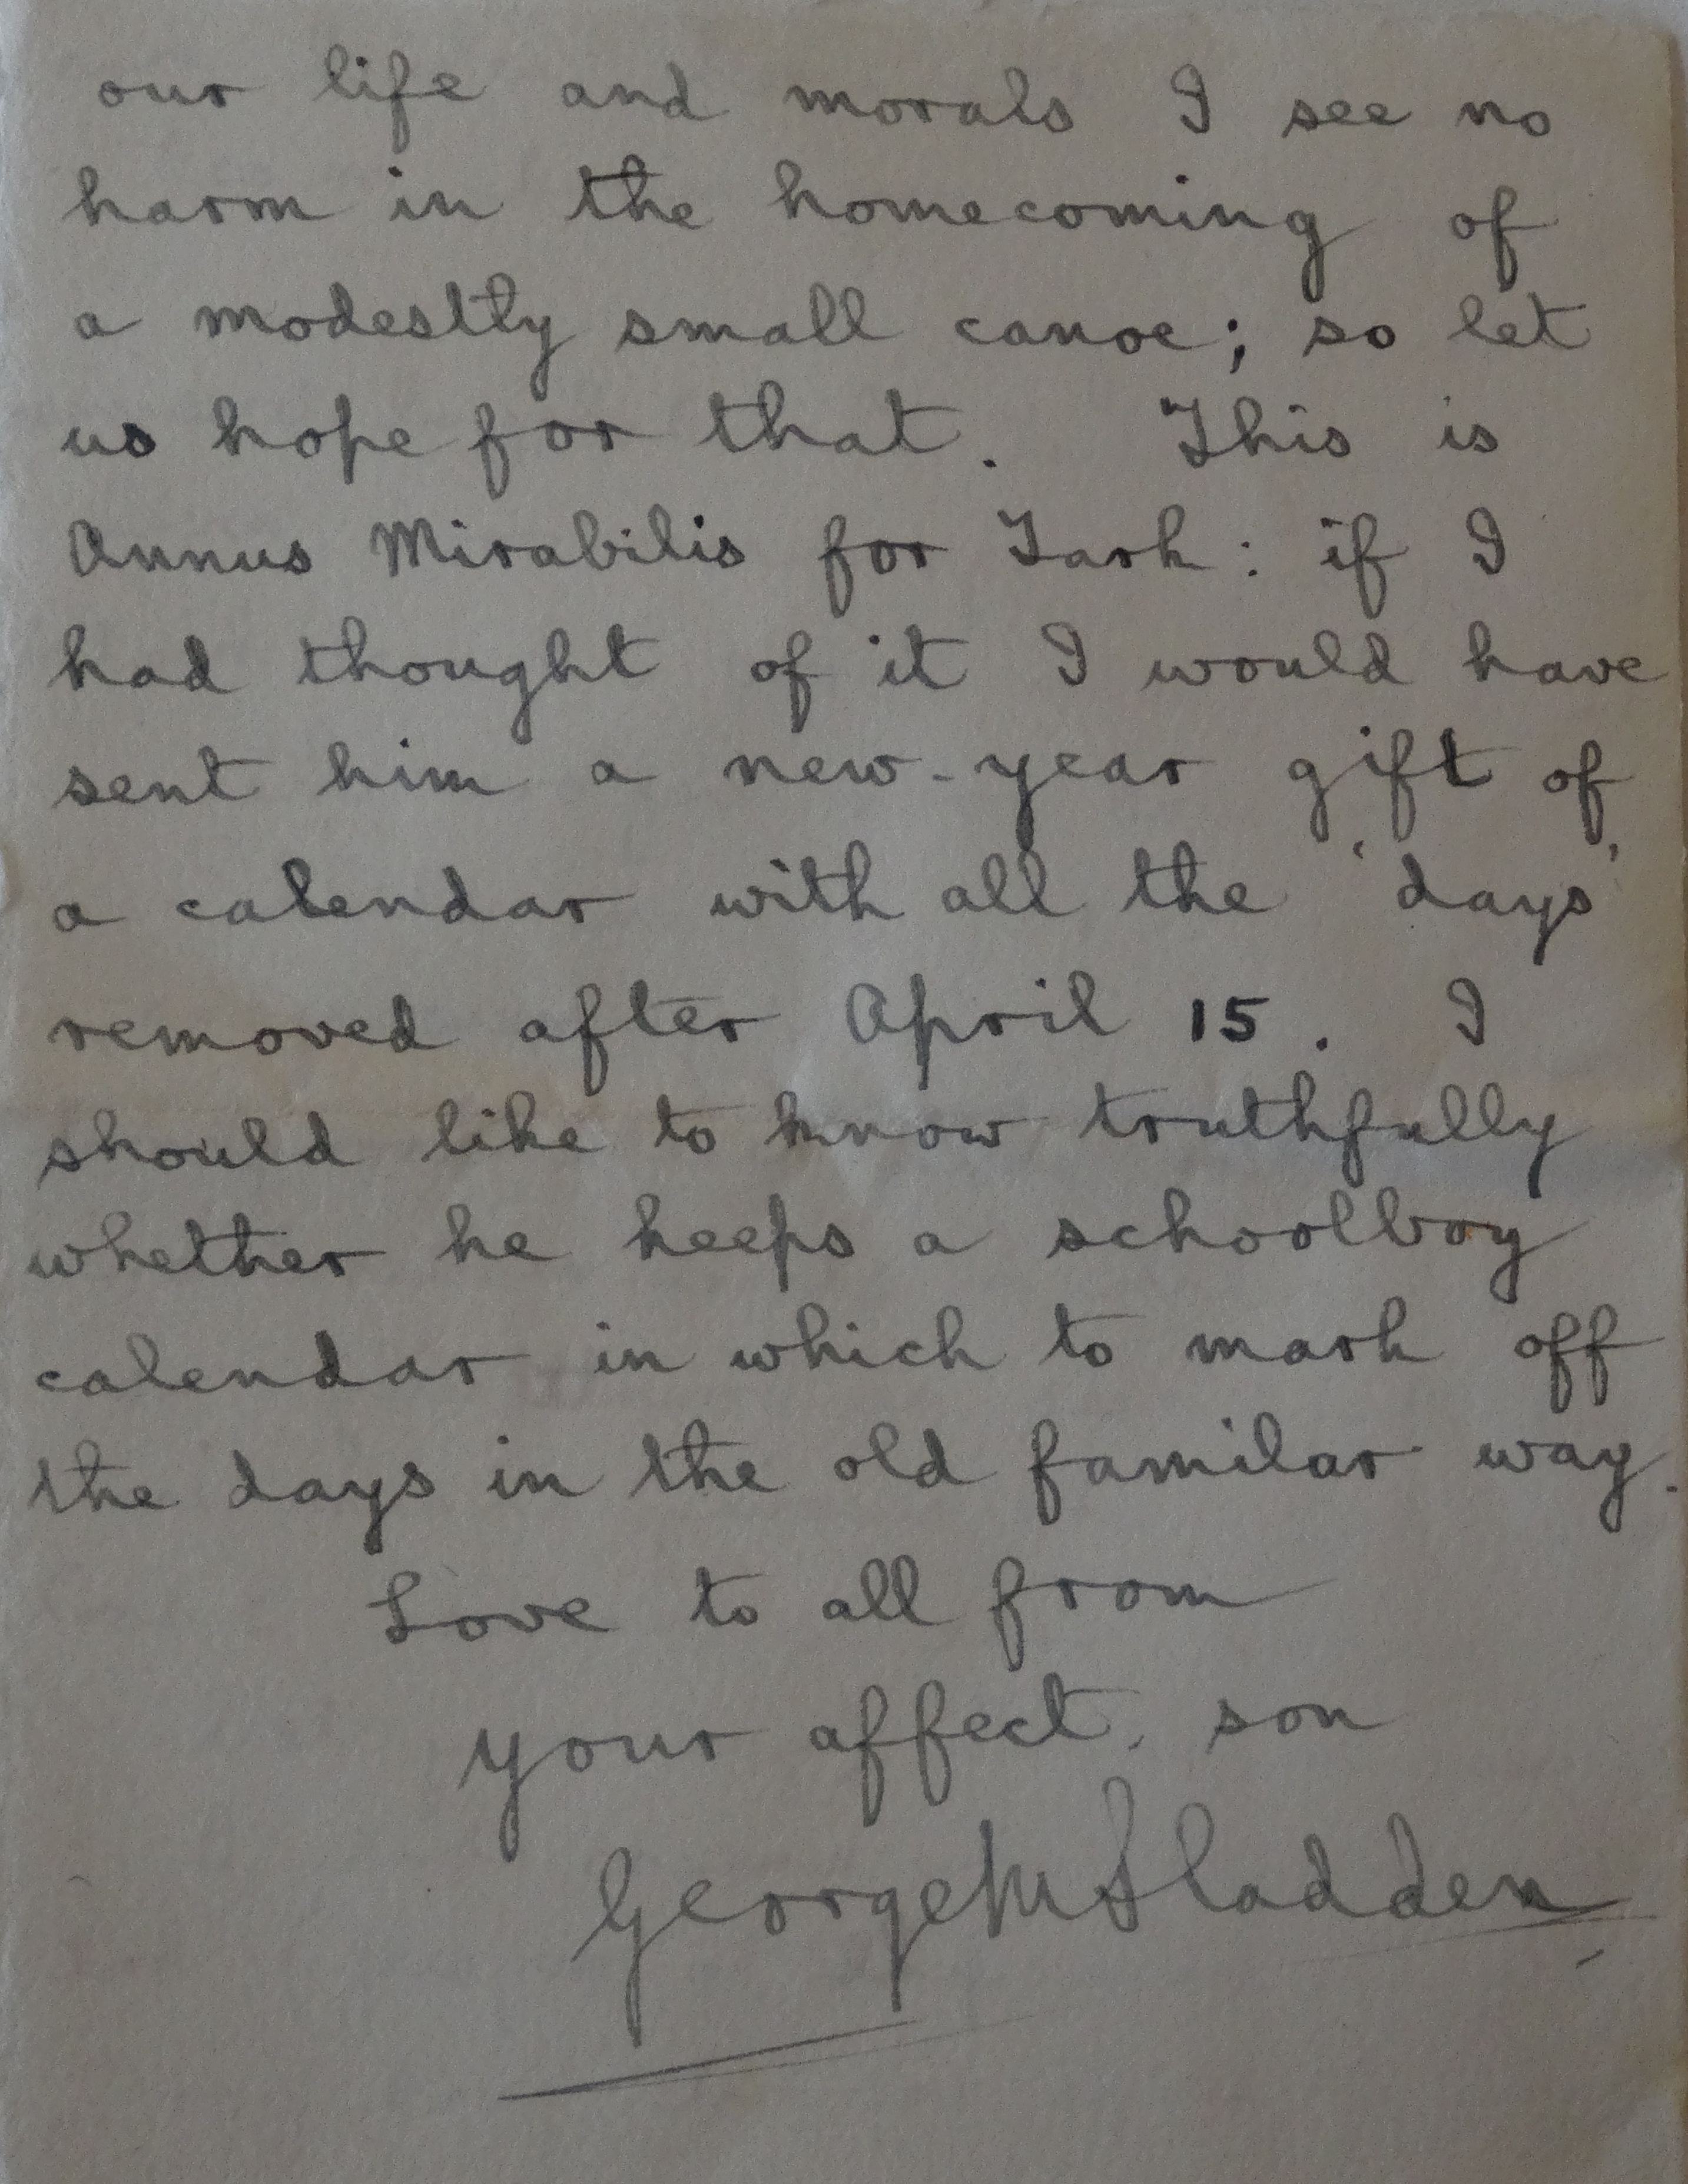 our life and morals I see no
harm in the homecoming of
a modestly small canoe; so let
us hope for that. This is
Annus Mirabilis for Jark: if I
had thought of it I would have
sent him a new-year gift of
a calendar with all the 'days'
removed after April 15. I
should like to know truthfully
whether he keeps a schoolboy
calendar in which to mark off
the days in the old familar way.
Love to all from
your affect. son
George M Sladden